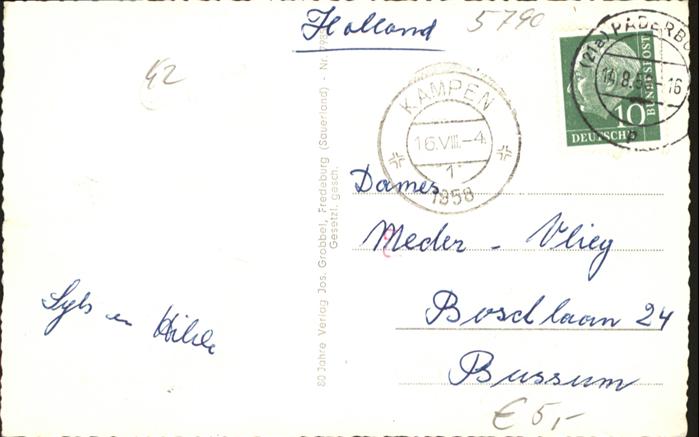 Holland
5790
42
(21a) PADERBO
14.8.5 -16
BUNDESPOST
10
DEUTSCHE
KAMPEN
16.VIII.-4
1
1958
80 Jahre Verlag Jos. Grobbel, Fredeburg (Sauerland) - Nr.
Gesetzl. gesch.
Dames
Meder - Vlieg
Boschlaan 24
Bussum
en Hilde
€ 5,-